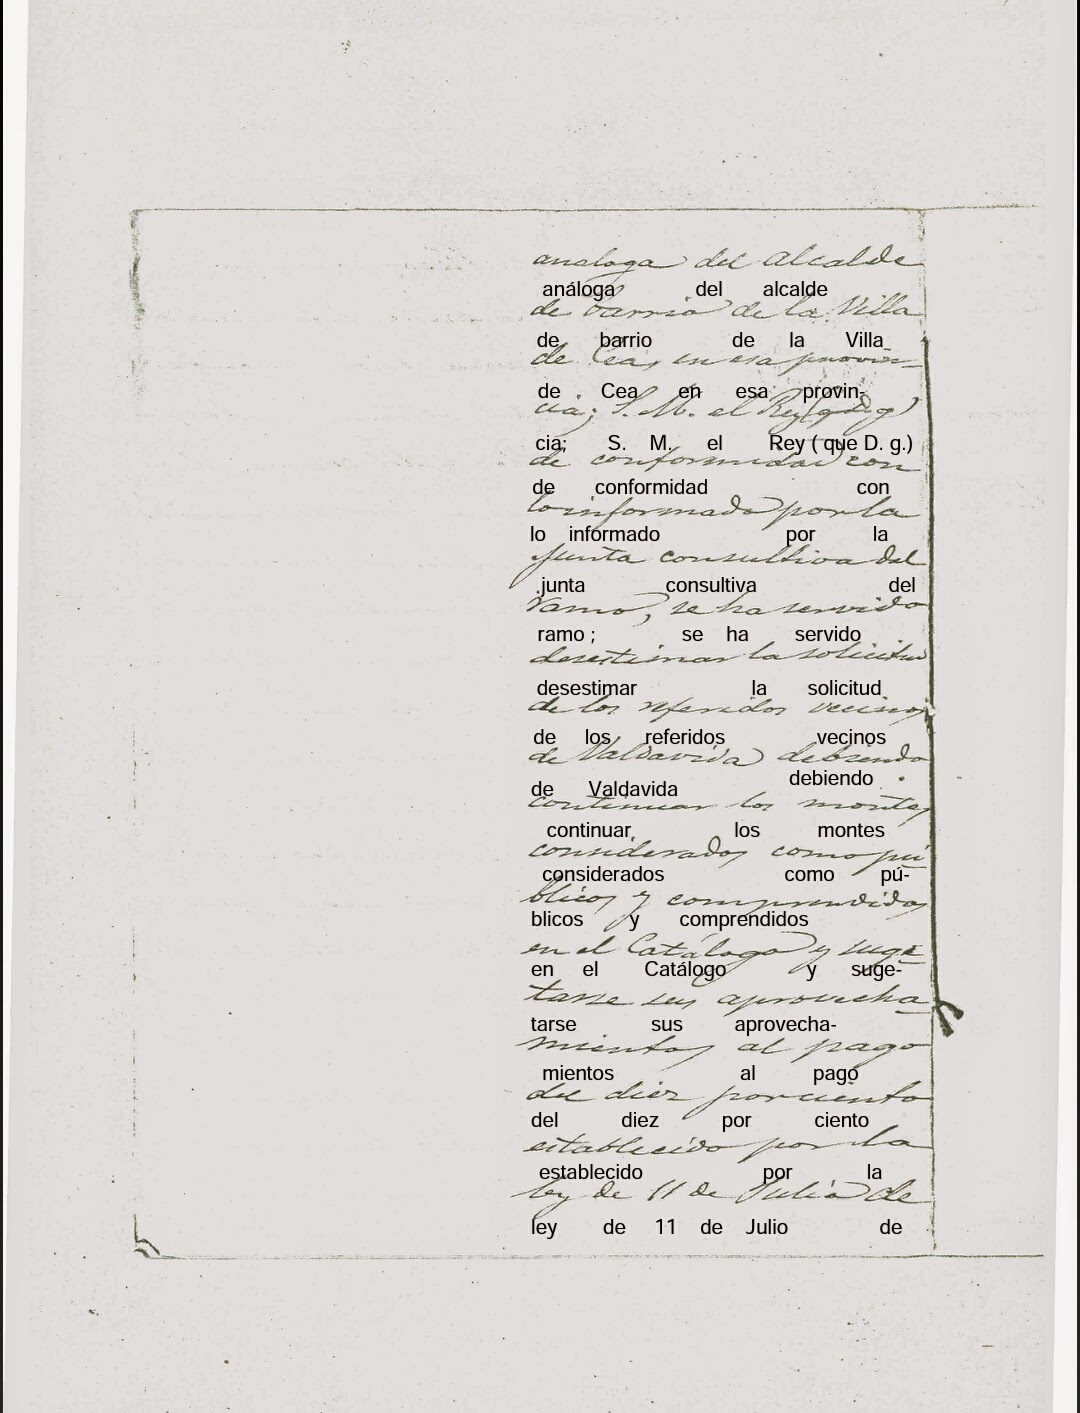 analoga del Alcalde
análoga del alcalde
de barrio de la Villa
de barrio de la Villa
de Cea, en esa provin-
de Cea en esa provin-
cia; S. M. el Rey (q. D. g.)
cia; S. M. el Rey ( que D. g.)
de conformidad con
de conformidad con
lo informado por la
lo informado por la
Junta consultiva del
junta consultiva del
ramo, se ha servido
ramo ; se ha servido
desestimar la solicitud
desestimar la solicitud
de los referidos vecinos
de los referidos vecinos
de Valdavida debiendo
de Valdavida debiendo
continuar los montes
continuar los montes
considerados como pú
considerados como pú-
blicos y comprendidos
blicos y comprendidos
en el Catálogo y suge-
en el Catálogo y suge-
tarse sus aprovecha-
tarse sus aprovecha-
mientos al pago
mientos al pago
del diez por ciento
del diez por ciento
establecido por la
establecido por la
ley de 11 de Julio de
ley de 11 de Julio de